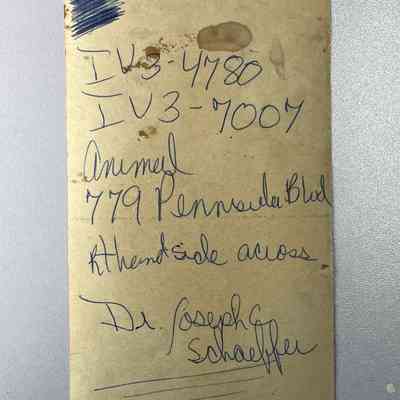 IV3-4780
IV3-7007
Animed
779 Pennside Blvd
Rt hand side across
Dr. Joseph C
Schaeffer